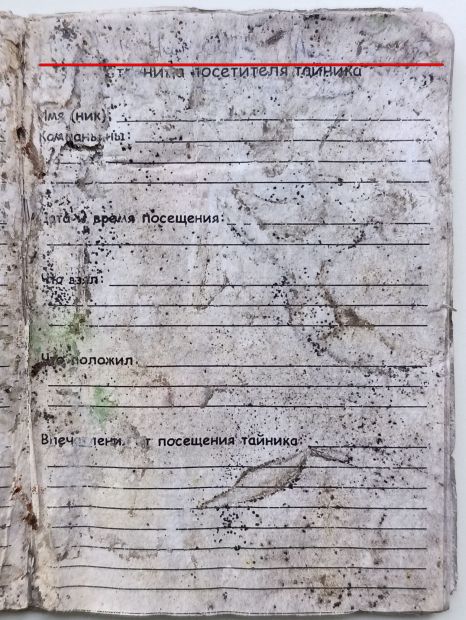 посетителя тайника
Имя (ник):
Компаньоны:
Дата и время посещения:
Что взял:
Что положил
Впечатления от посещения тайника: